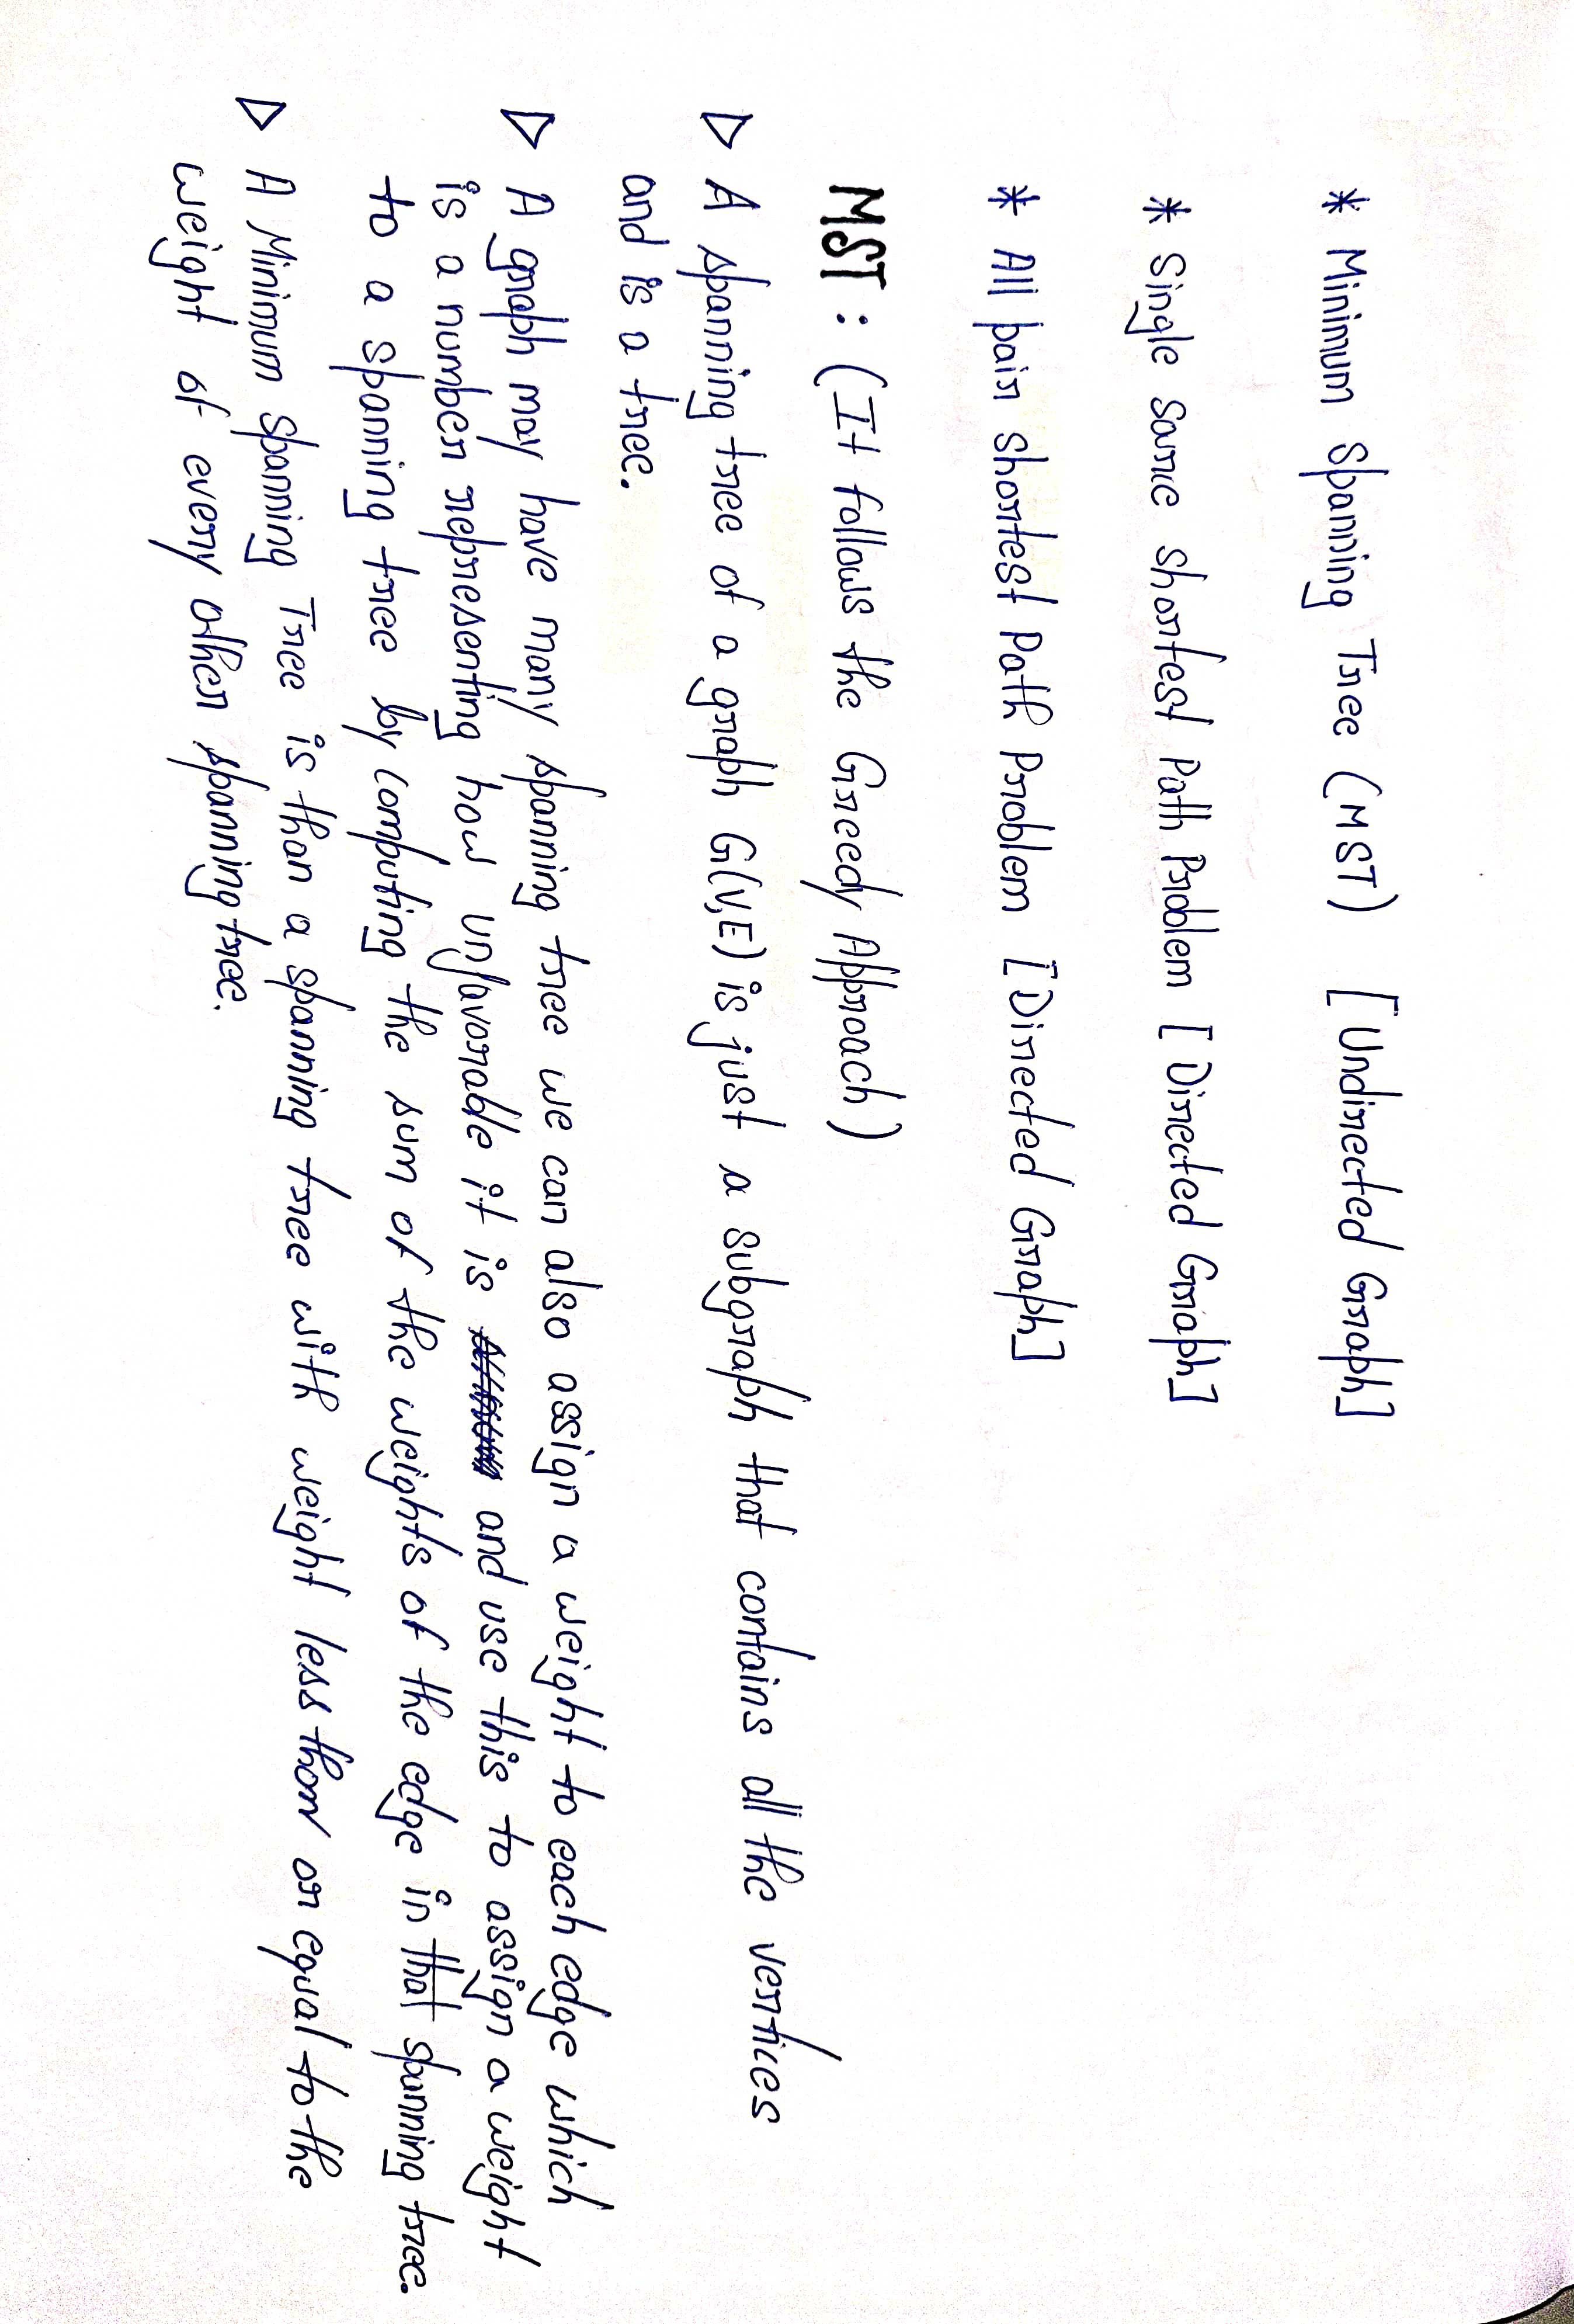 * Minimum Spanning Tree (MST) [Undirected Graph]
* Single Sourc Shortest Path Problem [Directed Graph]
* All pair shortest Path Problem [Directed Graph]
MST : (It follows the Greedy Approach)
▷ A spanning tree of a graph G(V,E) is just a subgraph that contains all the vertices
and is a tree.
▷ A graph may have many spanning tree we can also assign a weight to each edge which
is a number representing how unfavorable it is and use this to assign a weight
to a spanning tree by computing the sum of the weights of the edge in that spanning tree.
▷ A Minimum Spanning Tree is than a spanning tree with weight less than or equal to the
weight of every other spanning tree.